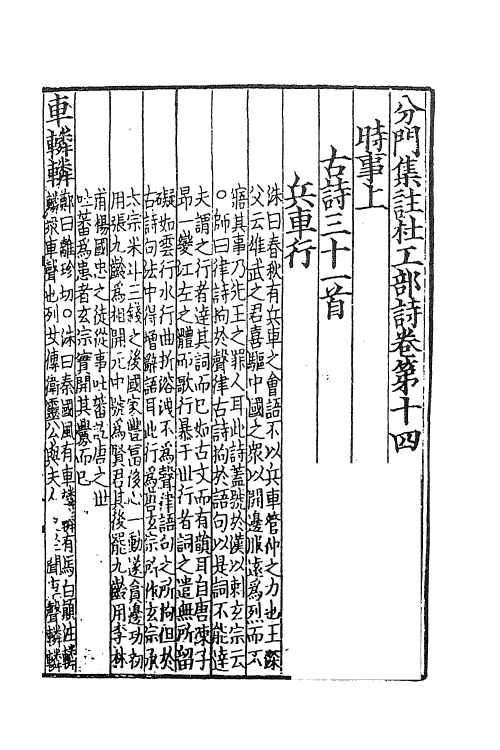 分門集註杜工部詩卷第十四
時事上
古詩三十一首
兵車行
洙曰春秋有兵車之會語不以兵車管仲之力也王深
父云雄武之君喜驅中國之衆以開邊服遠爲烈而不
寤其事乃先王之罪人耳此詩蓋號於漢以刺玄宗云
○師曰律詩拘於聲律古詩拘於語句以是詞不能達
夫謂之行者達其詞而已如古文而有韻耳自唐陳子
昂一變江左之體而歌行暴于世行者詞之遣無所留
礙如雲行水行曲折溶洩不爲聲律語句之所拘但於
古詩句法中得增辭語耳此行爲玄宗所作玄宗承
太宗米斗三錢之後國家豐富侈心一動遂貪邊功初
用張九齡爲相開元中號爲賢君其後罷九齡用李林
甫楊國忠之徒從事吐蕃訖唐之世
吐蕃爲患者玄宗實開其釁而已
車轔轔鄭曰離珍切○洙曰秦國風有車轔轔有馬白顛注轔
轔衆車聲也列女傳衛靈公與夫人 聞車聲轔轔